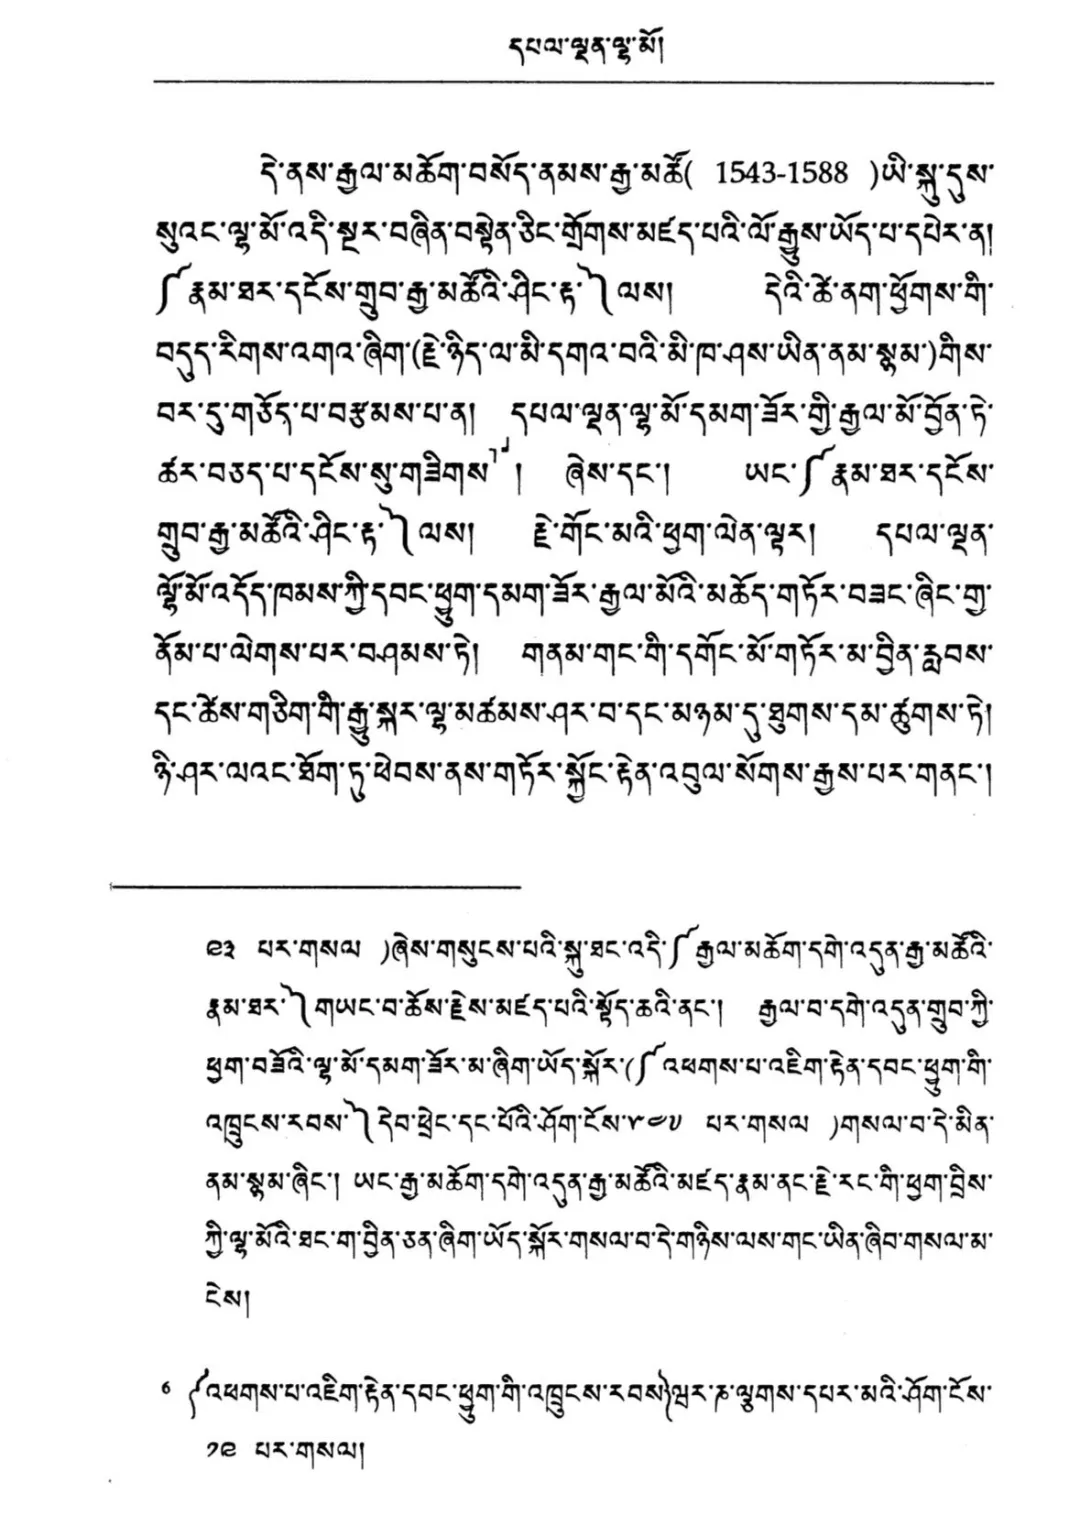 དཔལ་ལྡན་ལྷ་མོ།
དེ་ནས་རྒྱལ་མཆོག་བསོད་ནམས་རྒྱ་མཚོ( 1543-1588 )ཡི་སྐུ་དུས་
སུའང་ལྷ་མོ་འདི་སྔར་བཞིན་བསྟེན་ཅིང་གྲོགས་མཛད་པའི་ལོ་རྒྱུས་ཡོད་པ་དཔེར་ན།
༼རྣམ་ཐར་དངོས་གྲུབ་རྒྱ་མཚོའི་ཤིང་རྟ་༽ལས། དེའི་ཚེ་ནག་ཕྱོགས་ཀྱི་
བདུད་རིགས་འགའ་ཞིག་(རྗེ་ཉིད་ལ་མི་དགའ་བའི་མི་ཁ་ཤས་ཡིན་ནམ་སྙམ་)གིས་
བར་དུ་གཅོད་པ་བརྩམས་པ་ན། དཔལ་ལྡན་ལྷ་མོ་དམག་ཟོར་གྱི་རྒྱལ་མོ་བྱོན་ཏེ་
ཚར་བཅད་པ་དངོས་སུ་གཟིགས་། ཞེས་དང་། ཡང་༼རྣམ་ཐར་དངོས་
གྲུབ་རྒྱ་མཚོའི་ཤིང་རྟ་༽ལས། རྗེ་གོང་མའི་ཕྱག་ལེན་ལྟར། དཔལ་ལྡན་
ལྷོ་མོ་འདོད་ཁམས་ཀྱི་དབང་ཕྱུག་དམག་ཟོར་རྒྱལ་མོའི་མཆོད་གཏོར་བཟང་ཞིང་གྱ་
ནོམ་པ་ལེགས་པར་བཤམས་ཏེ། གནམ་གང་གི་དགོང་མོ་གཏོར་མ་བྱིན་རླབས་
དང་ཚེས་གཅིག་གི་རྒྱུ་སྐར་ལྷ་མཚམས་ཤར་བ་དང་མཉམ་དུ་ཐུགས་དམ་ཚུགས་ཏེ།
ཉི་ཤར་ལའང་ཐོག་ཏུ་ཕེབས་ནས་གཏོར་སྐྱོང་རྟེན་འབུལ་སོགས་རྒྱས་པར་གནང་།
༩༣ པར་གསལ )ཞེས་གསུངས་པའི་སྐུ་ཐང་འདི་༼རྒྱལ་མཆོག་དགེ་འདུན་རྒྱ་མཚོའི་
རྣམ་ཐར་༽གཡང་བ་ཆོས་རྗེས་མཛད་པའི་སྟོད་ཆའི་ནང་། རྒྱལ་བ་དགེ་འདུན་གྲུབ་ཀྱི་
ཕྱག་བཟོའི་ལྷ་མོ་དམག་ཟོར་མ་ཞིག་ཡོད་སྐོར་(༼འཕགས་པ་འཇིག་རྟེན་དབང་ཕྱུག་གི་
འཁྲུངས་རབས་༽དེབ་ཕྲེང་དང་པོའི་ཤོག་ངོས་༤༠༧ པར་གསལ )གསལ་བ་དེ་མིན་
ནམ་སྙམ་ཞིང་། ཡང་རྒྱ་མཆོག་དགེ་འདུན་རྒྱ་མཚོའི་མཛད་རྣམ་ནང་རྗེ་རང་གི་ཕྱག་བྲིས་
ཀྱི་ལྷ་མོའི་ཐང་ག་བྱིན་ཅན་ཞིག་ཡོད་སྐོར་གསལ་བ་དེ་གཉིས་ལས་གང་ཡིན་ཞིབ་གསལ་མ་
ངེས།
6 ༼འཕགས་པ་འཇིག་རྟེན་དབང་ཕྱུག་གི་འཁྲུངས་རབས༽ལྕགས་དཔར་མའི་ཤོག་ངོས་
༡༩ པར་གསལ།